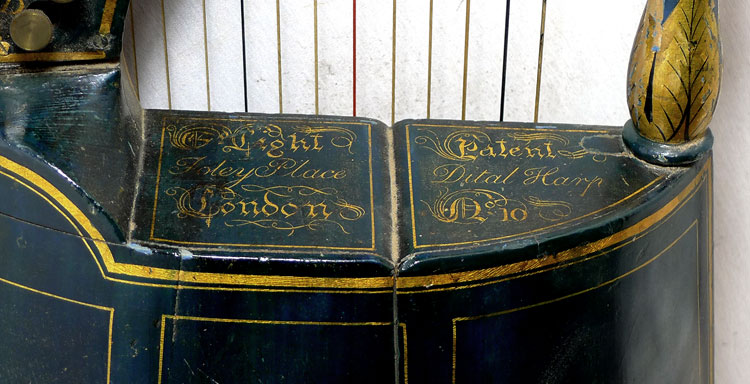 E. Light
Foley Place
London
Patent
Dital Harp
No. 10